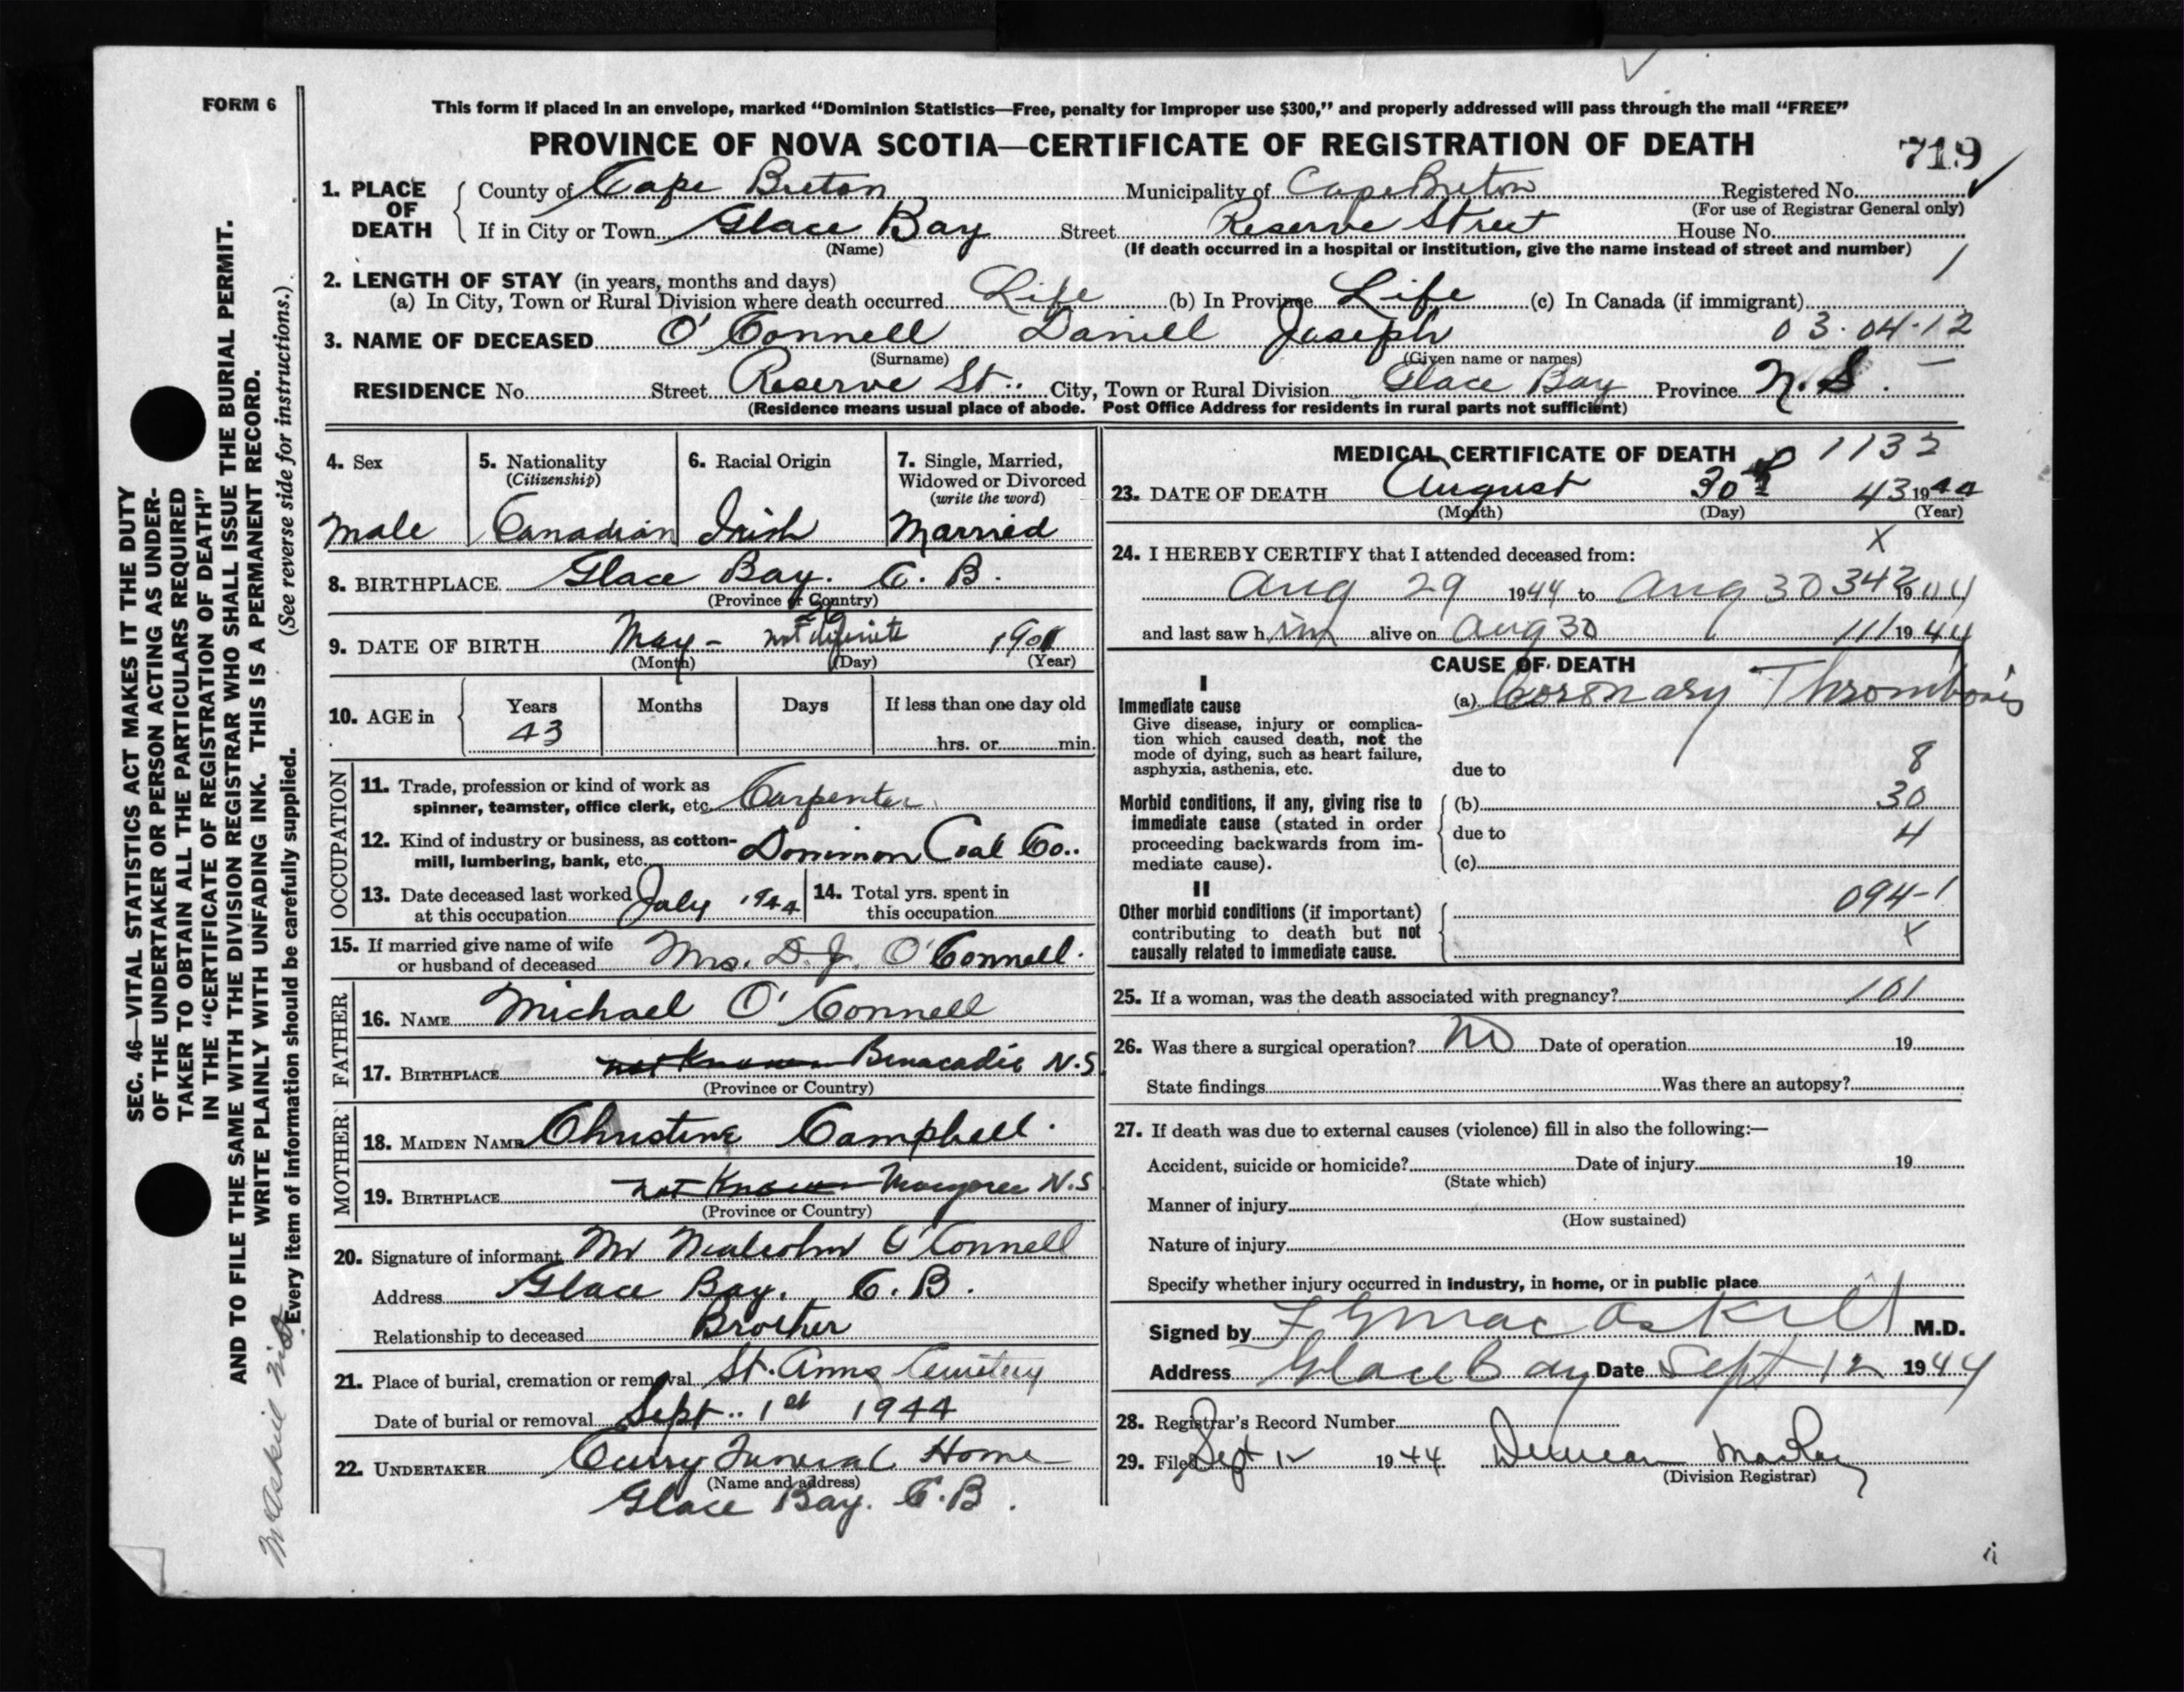 FORM 6
This form if placed in an envelope, marked “Dominion Statistics—Free, penalty for improper use $300,” and properly addressed will pass through the mail “FREE”
PROVINCE OF NOVA SCOTIA—CERTIFICATE OF REGISTRATION OF DEATH
719
1. PLACE OF DEATH
County of Cape Breton Municipality of Cape Breton Registered No.
(For use of Registrar General only)
If in City or Town Glace Bay Street Reserve Street House No.
(Name) (If death occurred in a hospital or institution, give the name instead of street and number)
2. LENGTH OF STAY (in years, months and days)
(a) In City, Town or Rural Division where death occurred Life (b) In Province Life (c) In Canada (if immigrant)
3. NAME OF DECEASED O'Connell Daniel Joseph 03.04-12
(Surname) (Given name or names)
RESIDENCE No. Street Reserve St.. City, Town or Rural Division Glace Bay Province N.S.
(Residence means usual place of abode. Post Office Address for residents in rural parts not sufficient)
4. Sex
Male
5. Nationality
(Citizenship)
Canadian
6. Racial Origin
Irish
7. Single, Married,
Widowed or Divorced
(write the word)
Married
8. BIRTHPLACE Glace Bay. C. B.
(Province or Country)
9. DATE OF BIRTH May - not definite 1901
(Month) (Day) (Year)
10. AGE in
Years Months Days If less than one day old
43
hrs. or min.
OCCUPATION
11. Trade, profession or kind of work as
spinner, teamster, office clerk, etc. Carpenter.
12. Kind of industry or business, as cotton-
mill, lumbering, bank, etc. Dominion Coal Co..
13. Date deceased last worked
at this occupation July 1944
14. Total yrs. spent in
this occupation
15. If married give name of wife
or husband of deceased Mrs. D. J. O'Connell.
FATHER
16. NAME Michael O'Connell
17. BIRTHPLACE not Known Benacadie N.S.
(Province or Country)
MOTHER
18. MAIDEN NAME Christine Campbell.
19. BIRTHPLACE not Known Margaree N.S
(Province or Country)
20. Signature of informant Mr Malcolm O'Connell
Address Glace Bay. C.B.
Relationship to deceased Brother
21. Place of burial, cremation or removal St. Anns Cemetery
Date of burial or removal Sept.. 1st 1944
22. UNDERTAKER Curry Funeral Home
(Name and address)
Glace Bay. C.B.
MEDICAL CERTIFICATE OF DEATH
1132
23. DATE OF DEATH August 30th 43 1944
(Month) (Day) (Year)
X
24. I HEREBY CERTIFY that I attended deceased from:
Aug 29 1944 to Aug 30 342 1944
and last saw him alive on Aug 30 111 1944
CAUSE OF DEATH
I
Immediate cause
Give disease, injury or complica-
tion which caused death, not the
mode of dying, such as heart failure,
asphyxia, asthenia, etc.
(a) Coronary Thrombosis
due to 8
Morbid conditions, if any, giving rise to
immediate cause (stated in order
proceeding backwards from im-
mediate cause).
(b) 30
due to 4
(c)
II
Other morbid conditions (if important)
contributing to death but not
causally related to immediate cause.
094-1
X
25. If a woman, was the death associated with pregnancy? 101
26. Was there a surgical operation? No Date of operation 19
State findings Was there an autopsy?
27. If death was due to external causes (violence) fill in also the following:—
Accident, suicide or homicide? Date of injury 19
(State which)
Manner of injury
(How sustained)
Nature of injury
Specify whether injury occurred in industry, in home, or in public place
Signed by F G MacAskill M.D.
Address Glace Bay Date Sept 12 1944
28. Registrar's Record Number
29. Filed Sept 12 1944 Duncan
(Division Registrar)
SEC. 46—VITAL STATISTICS ACT MAKES IT THE DUTY
OF THE UNDERTAKER OR PERSON ACTING AS UNDER-
TAKER TO OBTAIN ALL THE PARTICULARS REQUIRED
IN THE “CERTIFICATE OF REGISTRATION OF DEATH”
AND TO FILE THE SAME WITH THE DIVISION REGISTRAR WHO SHALL ISSUE THE BURIAL PERMIT.
WRITE PLAINLY WITH UNFADING INK. THIS IS A PERMANENT RECORD.
Every item of information should be carefully supplied. (See reverse side for instructions.)